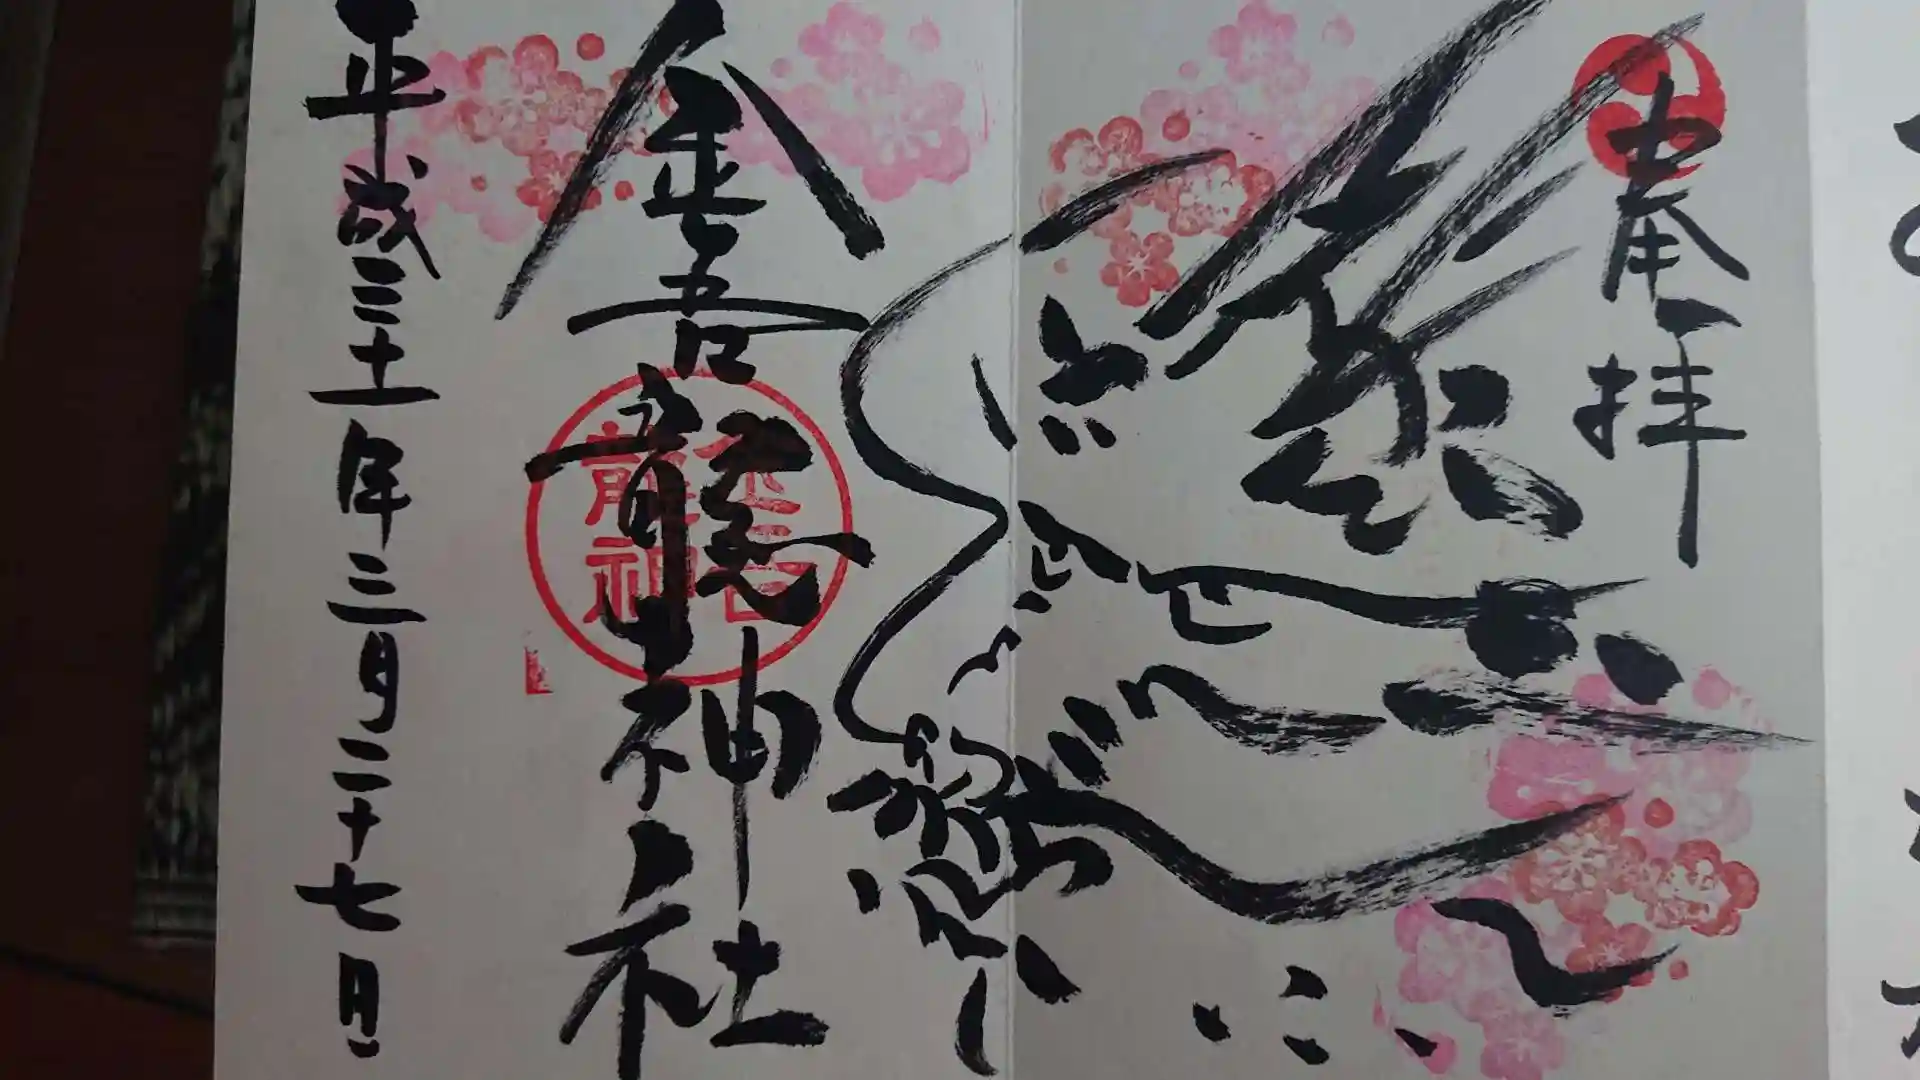 奉拝
金吾龍神社
金吾
龍神
平成三十一年三月二十七日